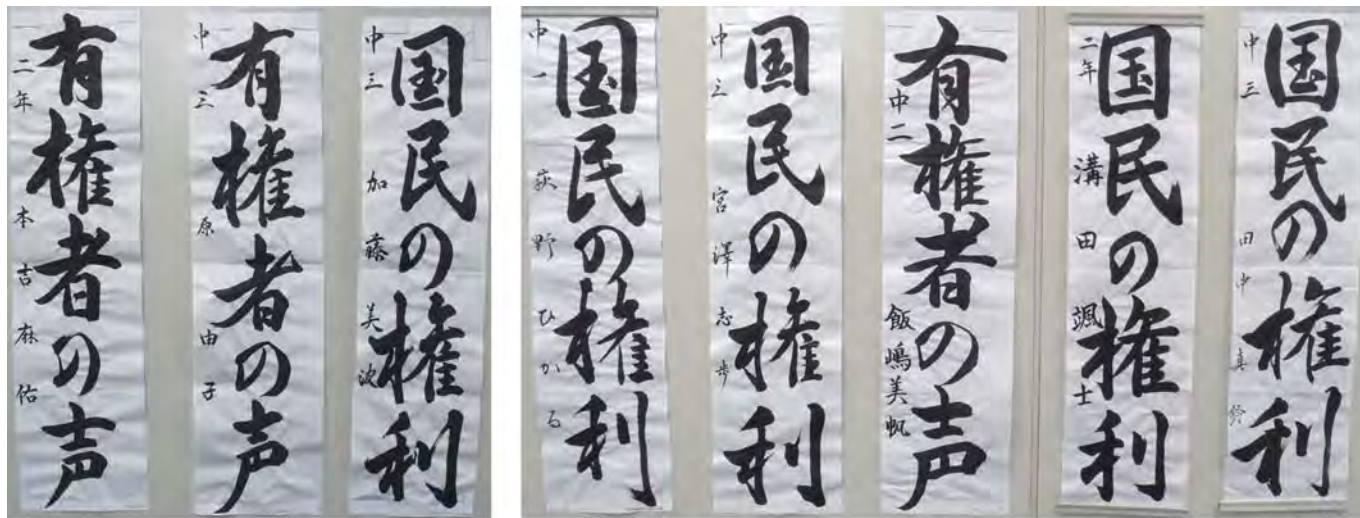 有権者の声
二年 本吉麻佑
有権者の声
中三 原由子
国民の権利
中三 加藤美波
国民の権利
中一 荻野ひかる
国民の権利
中三 宮澤志歩
有権者の声
中二 飯嶋美帆
国民の権利
二年 溝田颯士
国民の権利
中三 田中真鈴